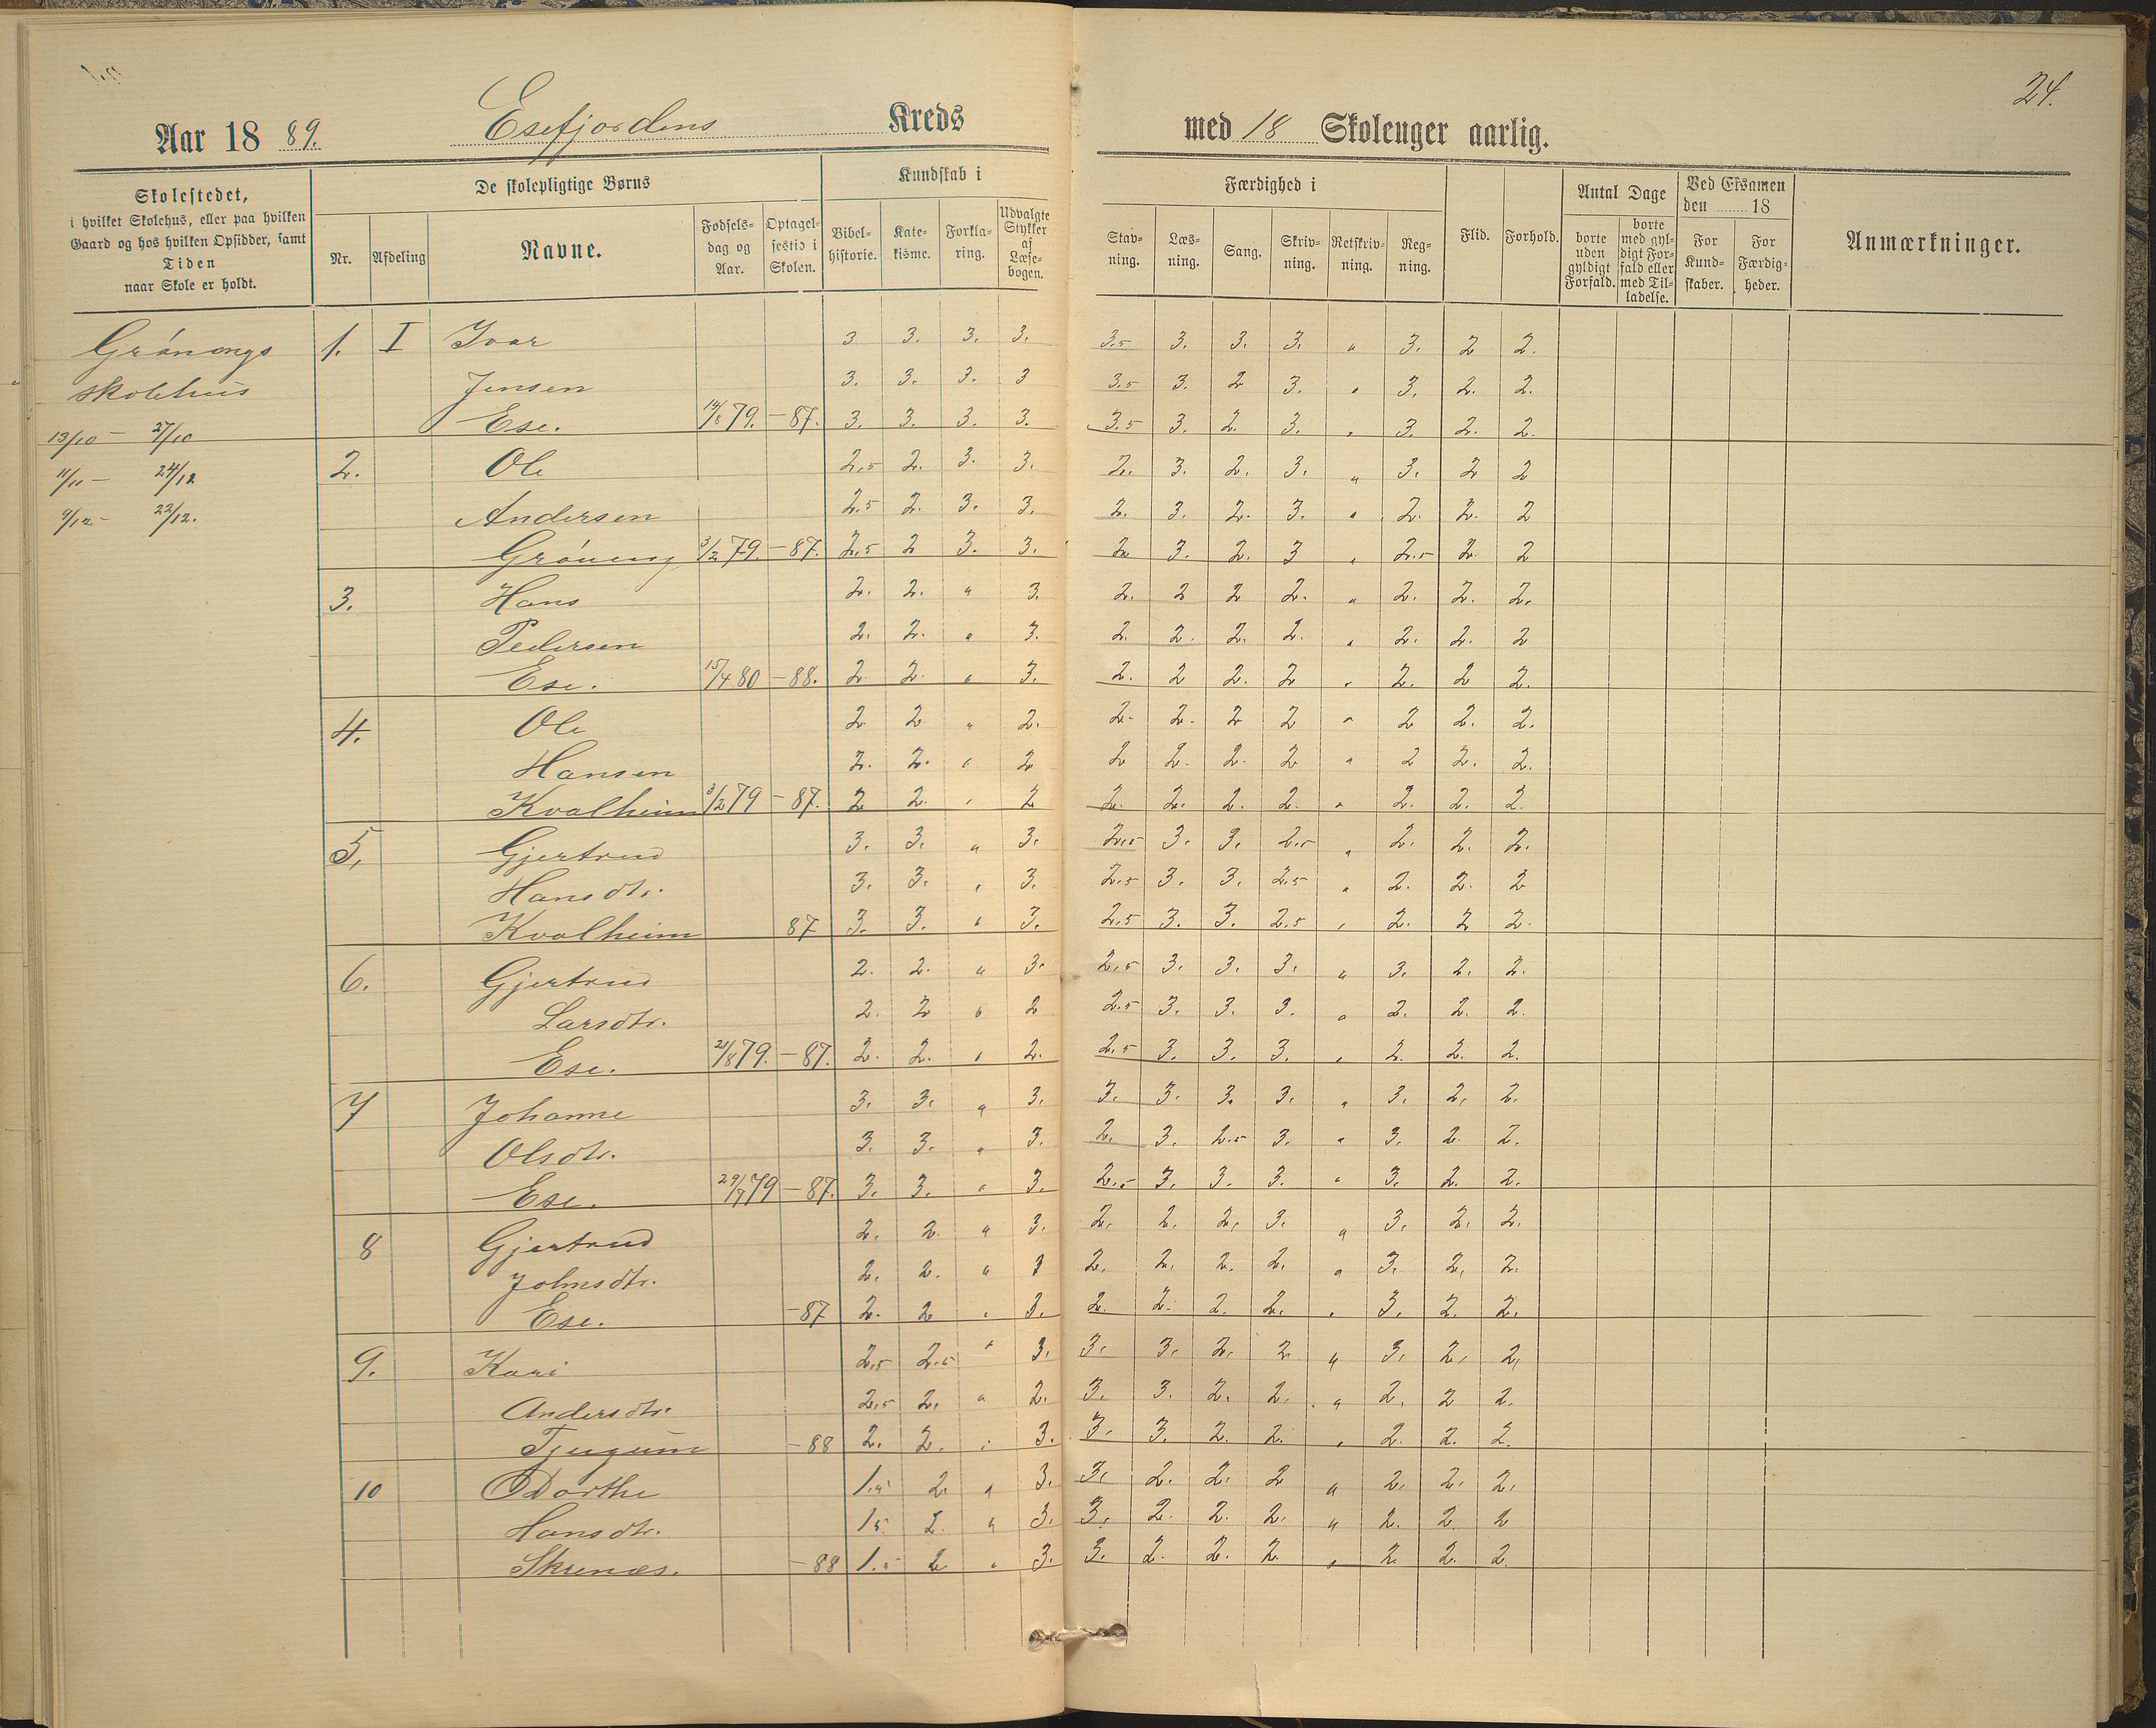 24.
Aar 1889. Esefjordens Kreds med 18 Skoleuger aarlig.
Skolestedet, i hvilket Skolehus, eller paa hvilken Gaard og hos hvilken Opsidder, samt Tiden naar Skole er holdt.
De skolepligtige Børns
Nr. Afdeling Navne. Fødselsdag og Aar. Optagelsestid i Skolen.
Kundskab i
Bibelhistorie. Katekisme. Forklaring. Udvalgte Stykker af Læsebogen.
Færdighed i
Stavning. Læsning. Sang. Skrivning. Retskrivning. Regning.
Flid. Forhold.
Antal Dage
borte uden gyldigt Forfald. borte med gyldigt Forfald eller med Tilladelse.
Ved Eksamen den 18
For Kundskaber. For Færdigheder.
Anmærkninger.
Grønengs
skolehus
13/10 - 27/10
11/11 - 24/12
9/12 - 22/12.
1. I Ivar 3 3. 3. 3. 3.5 3. 3. 3. " 3. 2 2.
Jensen 3. 3. 3. 3 3.5 3. 2 3. " 3. 2. 2.
Ese. 14/8 79. -87. 3. 3. 3. 3. 3.5 3. 2. 3. " 3. 2. 2.
2. Ole 2,5 2. 3. 3. 2. 3. 2. 3. " 3. 2 2
Andersen 2.5 2. 3. 3. 2. 3. 2. 3. " 2. 2. 2
Gröneng 3/2 79. -87. 2,5 2 3. 3. 2 3. 2. 3 " 2.5 2. 2
3. Hans 2. 2. " 3. 2. 2 2 2. " 2. 2. 2.
Pedersen 2. 2. " 3. 2. 2. 2. 2. " 2. 2. 2
Ese. 15/4 80 -88. 2. 2. " 3. 2. 2 2. 2 " 2. 2 2.
4. Ole 2 2 " 2. 2. 2. 2 2 " 2 2. 2.
Hansen 2. 2. " 2 2 2. 2. 2 " 2 2. 2.
Kvalheim 3/2 79 -87. 2 2. " 2 2. 2. 2. 2. " 2. 2. 2.
5. Gjertrud 3. 3. " 3. 2.5 3. 3. 2.5 " 2. 2. 2.
Hansdtr. 3. 3. " 3. 2.5 3. 3. 2.5 " 2. 2. 2
Kvalheim 87 3. 3. " 3. 2.5 3. 3. 2.5 " 2. 2 2.
6. Gjertrud 2. 2. " 3. 2.5 3. 3. 3. " 3. 2. 2.
Larsdtr. 2. 2 " 2 2.5 3. 3. 3. " 2. 2. 2.
Ese. 21/8 79. -87. 2. 2. " 2. 2.5 3. 3. 3. " 2. 2. 2.
7 Johanne 3. 3. " 3. 3. 3. 3. 3. " 3. 2. 2.
Olsdtr. 3. 3. " 3. 2. 3. 2.5 3. " 3. 2. 2.
Ese. 29/7 79 -87. 3. 3. " 3. 2.5 3. 3. 3. " 3. 2. 2.
8 Gjertrud 2. 2. " 3. 2. 2. 2. 3. " 3. 2. 2.
Johnsdtr. 2. 2. " 3 2. 2. 2. 2. " 3. 2. 2.
Ese. -87 2. 2 " 3. 2. 2. 2. 2. " 3. 2. 2.
9. Kari 2,5 2.5 " 3. 3. 3. 2. 2. " 3. 2. 2.
Andersdtr. 2,5 2. " 2. 3. 3. 2. 2. " 2. 2 2.
Tjugum -88 2. 2. " 3. 3. 3. 2. 2. " 2. 2. 2.
10 Dorthe 1.5 2. " 3. 3. 2. 2. 2 " 2. 2. 2.
Hansdtr. 1.5 2. " 3. 3. 2. 2. 2. " 2. 2. 2
Skrenes. -88 1.5 2 " 3. 3. 2. 2. 2. " 2. 2. 2.